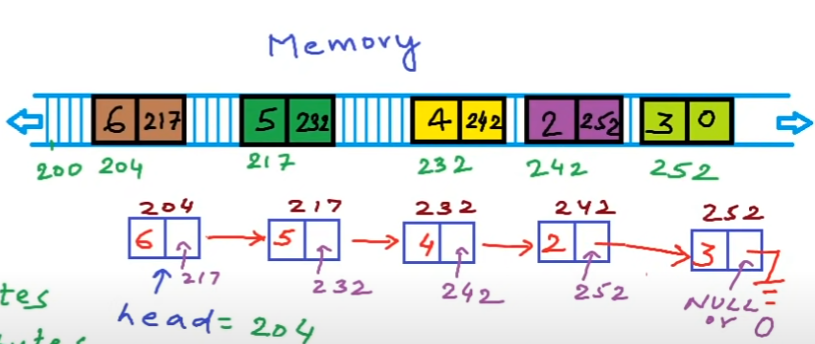 Memory
6 217 5 232 4 242 2 252 3 0
200 204 217 232 242 252
204 217 232 242 252
6 5 4 2 3
217 232 242 252 NULL
or 0
head = 204
tes
utes